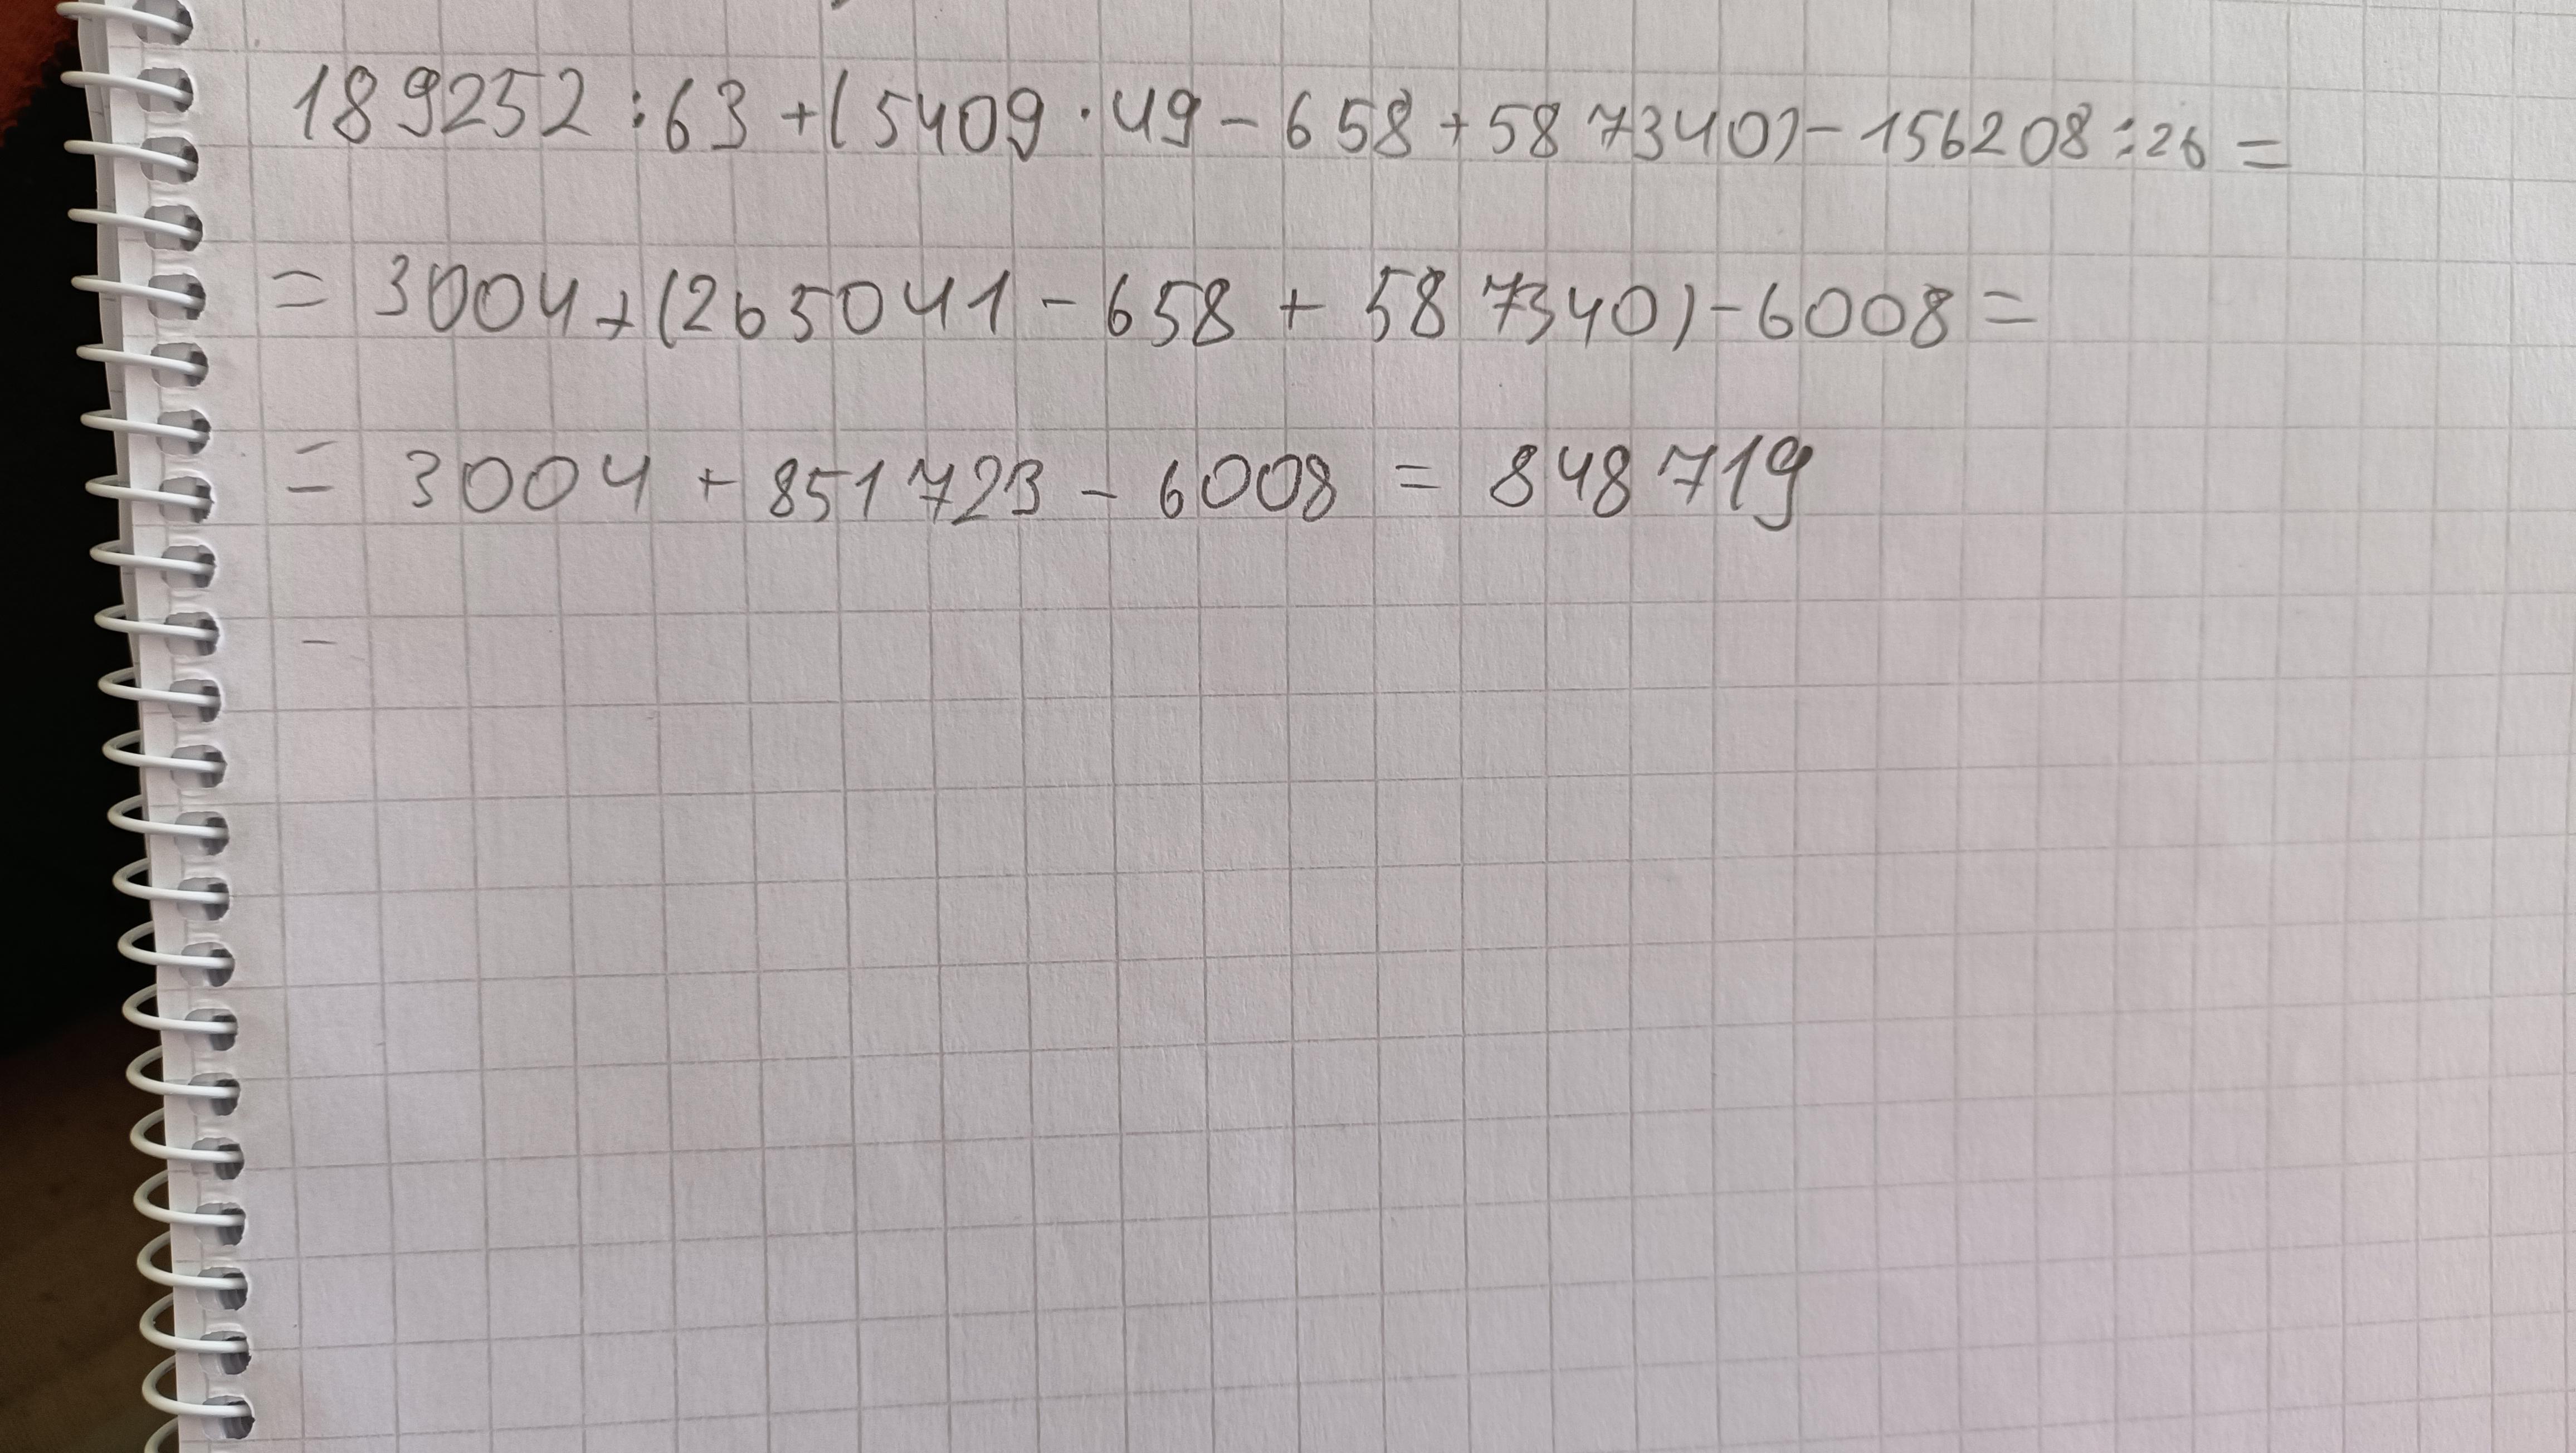 189252 : 63 + (5409 · 49 - 658 + 587340) - 156208 : 26 =
= 3004 + (265041 - 658 + 587340) - 6008 =
= 3004 + 851723 - 6008 = 848719
-